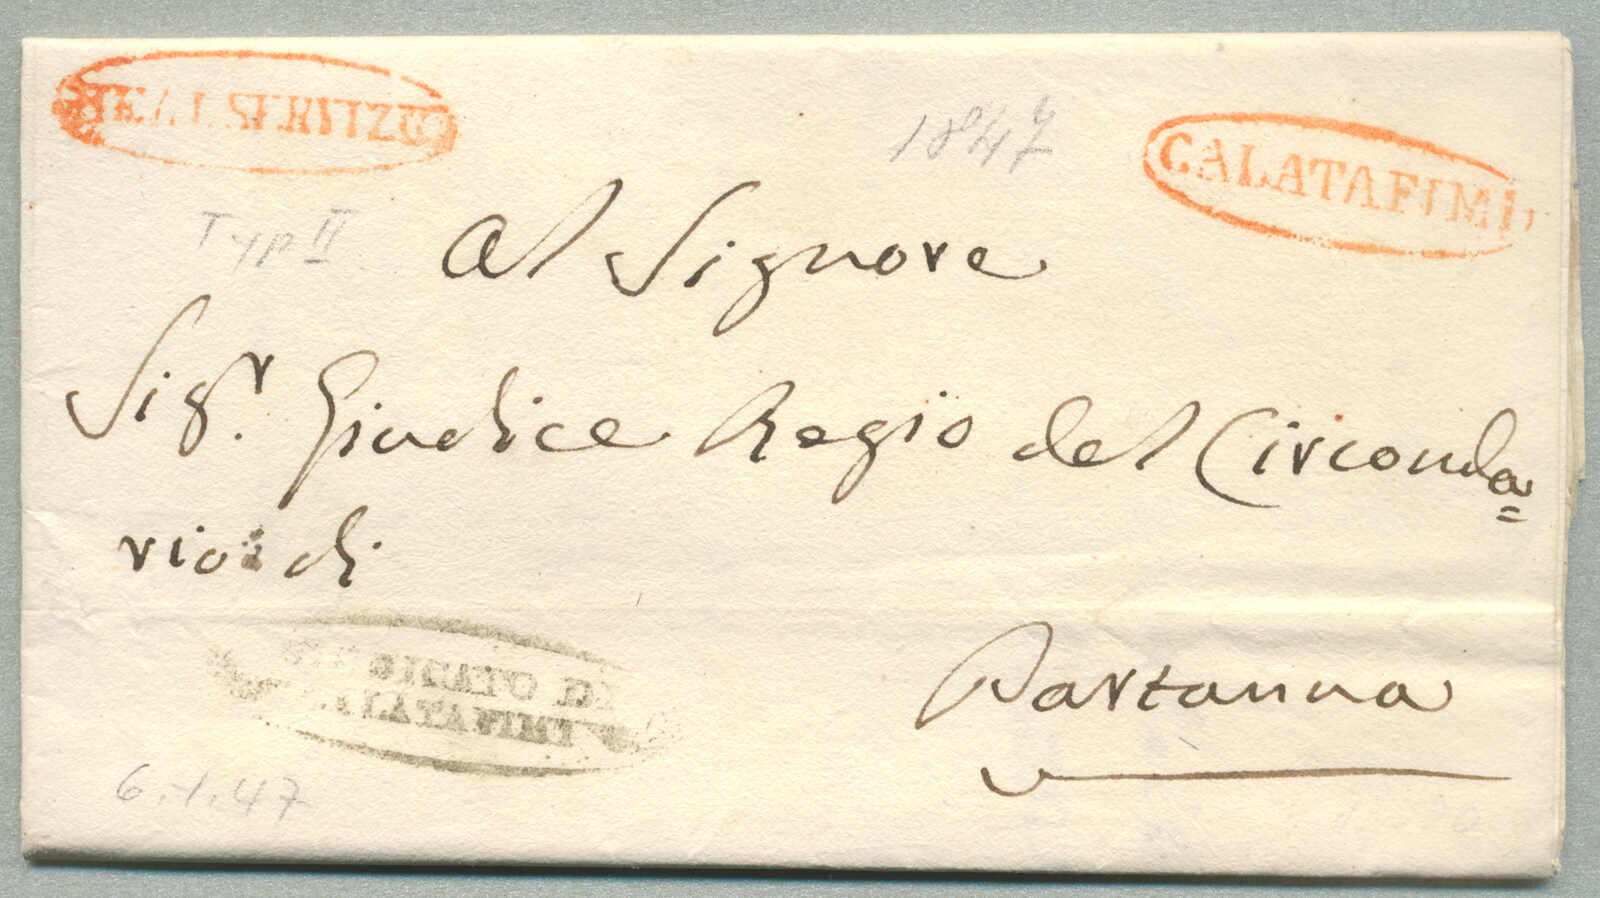 REAL SERVIZIO
1847
CALATAFIMI
Typ II
Al Signore
Sigr. Giudice Regio del Circonda=
rio di
GIUDIC
Partanna
6.1.47